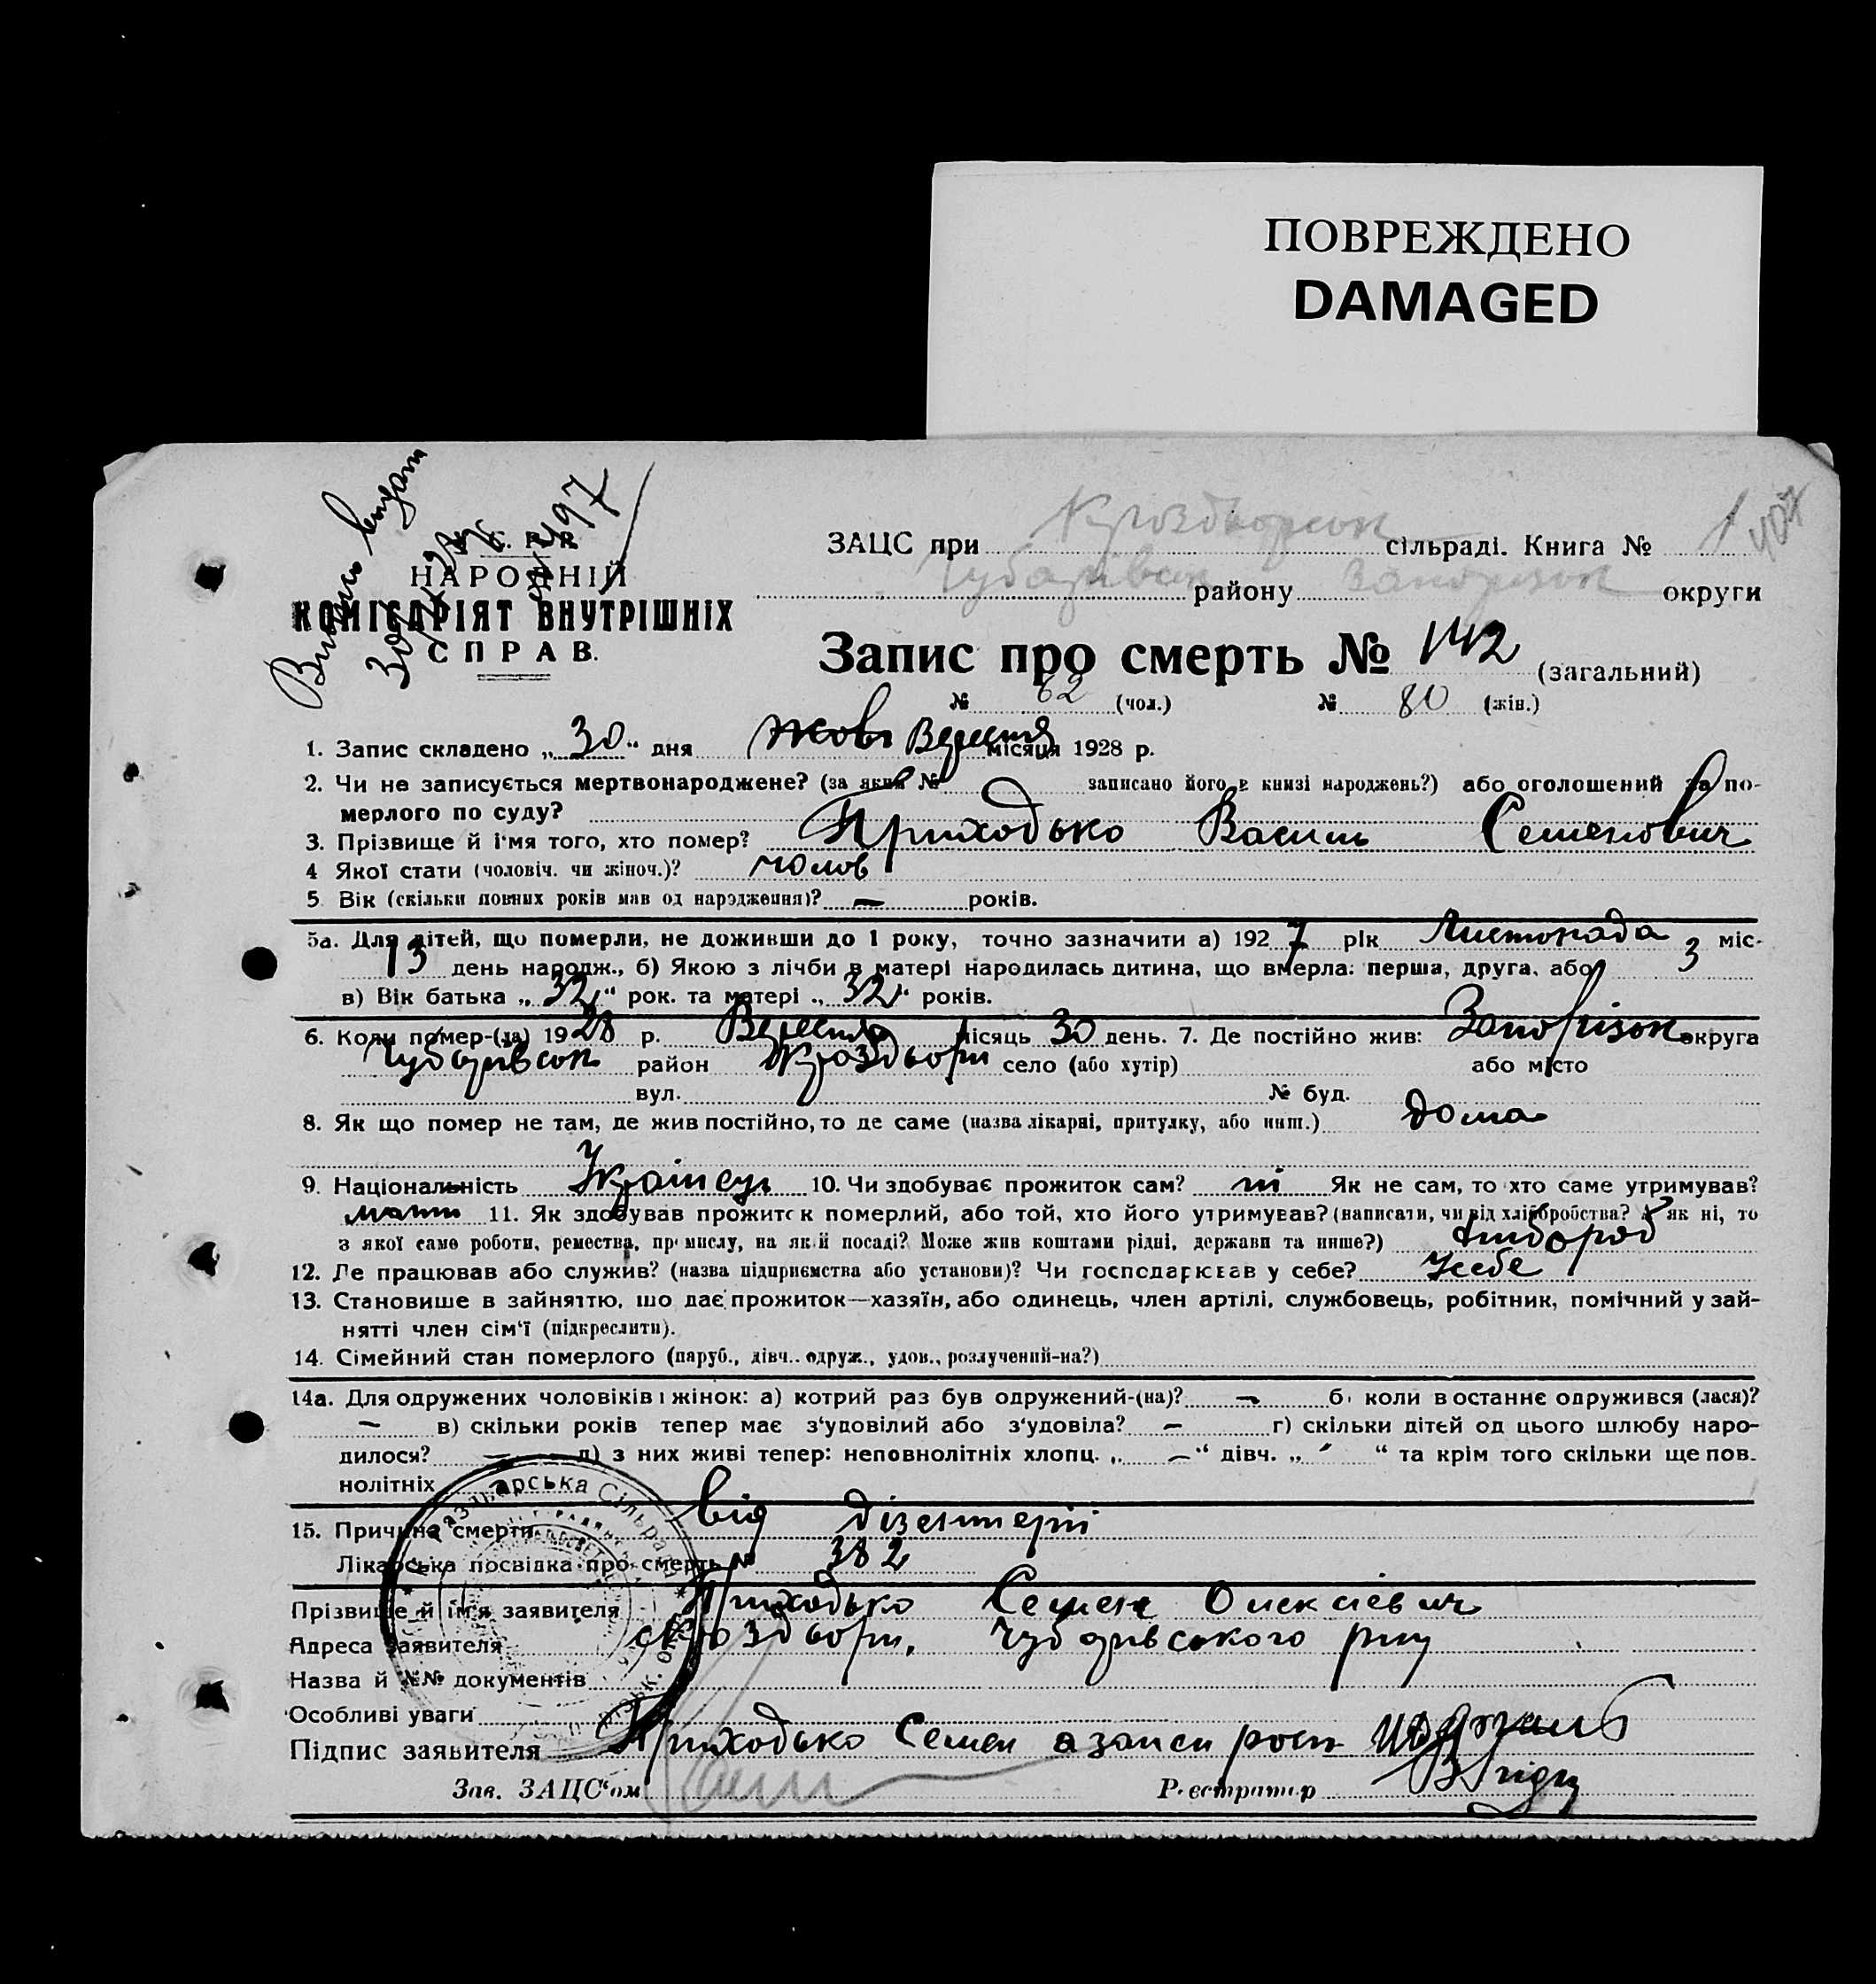 ПОВРЕЖДЕНО
DAMAGED
У. С. Р. Р.
НАРОДНІЙ
КОМІСАРІЯТ ВНУТРІШНІХ
СПРАВ.
ЗАЦС при сільраді. Книга № 1
Чубарівськ району Запорізьк округи
Запис про смерть № 142 (загальний)
№ 62 (чол.) № 80 (жін.)
1. Запис складено „30“ дня Жовт Вересня місяця 1928 р.
2. Чи не записується мертвонароджене? (за яким № записано його в книзі народжень?) або оголошений за по-
мерлого по суду?
3. Прізвище й ім'я того, хто помер? Приходько Василь Семенович
4 Якої стати (чоловіч. чи жіноч.)? чолов
5. Вік (скільки повних років мав од народження)? — років.
5а. Для дітей, що померли, не доживши до 1 року, точно зазначити а) 1927 рік Листопада міс-
13 день народж., б) Якою з лічби в матері народилась дитина, що вмерла: перша, друга, або 3
в) Вік батька „32“ рок. та матері „32“ років.
6. Коли помер-(ла) 1928 р. Вересня місяць 30 день. 7. Де постійно жив: Запорізьк округа
Чубарівськ район село (або хутір) або місто
вул. № буд.
8. Як що помер не там, де жив постійно, то де саме (назва лікарні, притулку, або инш.) дома
9. Національність Українець 10. Чи здобуває прожиток сам? ні Як не сам, то хто саме утримував?
мати 11. Як здобував прожиток померлий, або той, хто його утримував? (написати, чи від хліборобства? А як ні, то
з якої саме роботи, ремества, промислу, на якій посаді? Може жив коштами рідні, держави та инше?) хлібороб
12. Де працював або служив? (назва підприємства або установи)? Чи господарював у себе? У себе
13. Становище в зайняттю, що дає прожиток—хазяїн, або одинець, член артілі, службовець, робітник, помічний у зай-
нятті член сім'ї (підкреслити).
14. Сімейний стан померлого (паруб., дівч., одруж., удов., розлучений-на?)
14а. Для одружених чоловіків і жінок: а) котрий раз був одружений-(на)? — б) коли востаннє одружився (лася)?
— в) скільки років тепер має з'удовілий або з'удовіла? — г) скільки дітей од цього шлюбу наро-
дилося? — д) з них живі тепер: неповнолітніх хлопц. „—“ дівч. „ “ та крім того скільки ще пов.
нолітніх
15. Причина смерти від дізентерії
Лікарська посвідка про смерть № 382
Прізвище й ім'я заявителя Приходько Семен Олексієвич
Адреса заявителя Чубарівського р-ну
Назва й №№ документів
Особливі уваги
Підпис заявителя Приходько Семен а за нього росп
Зав. ЗАЦС'ом Реєстратор